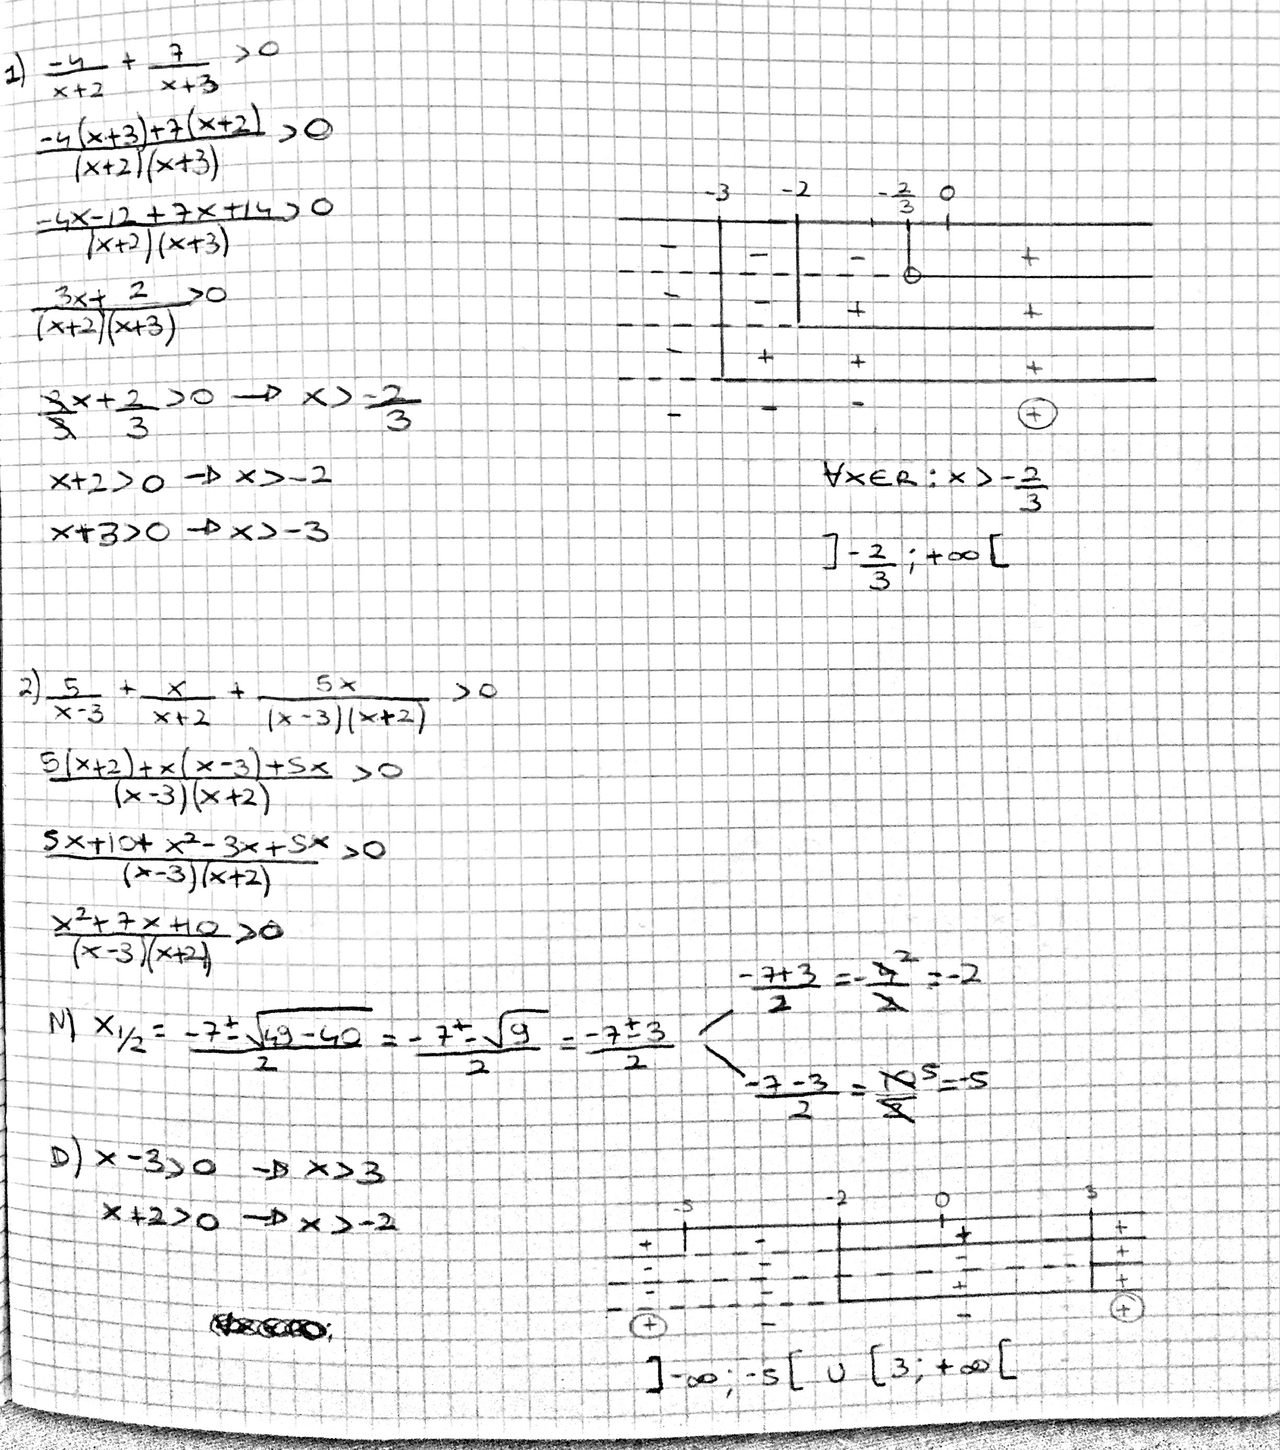 1) -4/(x+2) + 7/(x+3) >0
(-4(x+3)+7(x+2))/((x+2)(x+3)) >0
(-4x-12+7x+14)/((x+2)(x+3)) >0
(3x+2)/((x+2)(x+3)) >0
3/3 x + 2/3 >0 → x > -2/3
x+2>0 → x>-2
x+3>0 → x>-3
-3 -2 -2/3 0
- - - +
- - + +
- + + +
- - - +
∀x∈R : x > -2/3
]-2/3 ; +∞[
2) 5/(x-3) + x/(x+2) + 5x/((x-3)(x+2)) >0
(5(x+2)+x(x-3)+5x)/((x-3)(x+2)) >0
(5x+10+x²-3x+5x)/((x-3)(x+2)) >0
(x²+7x+10)/((x-3)(x+2)) >0
N) x1/2 = (-7±√(49-40))/2 = (-7±√9)/2 = (-7±3)/2
(-7+3)/2 = -4²/2 = -2
(-7-3)/2 = 10⁵/2 = -5
D) x-3>0 → x>3
x+2>0 → x>-2
-5 -2 0 3
+ - + +
- - - +
- - + +
+ - - +
]-∞ ; -5[ ∪ [3 ; +∞[